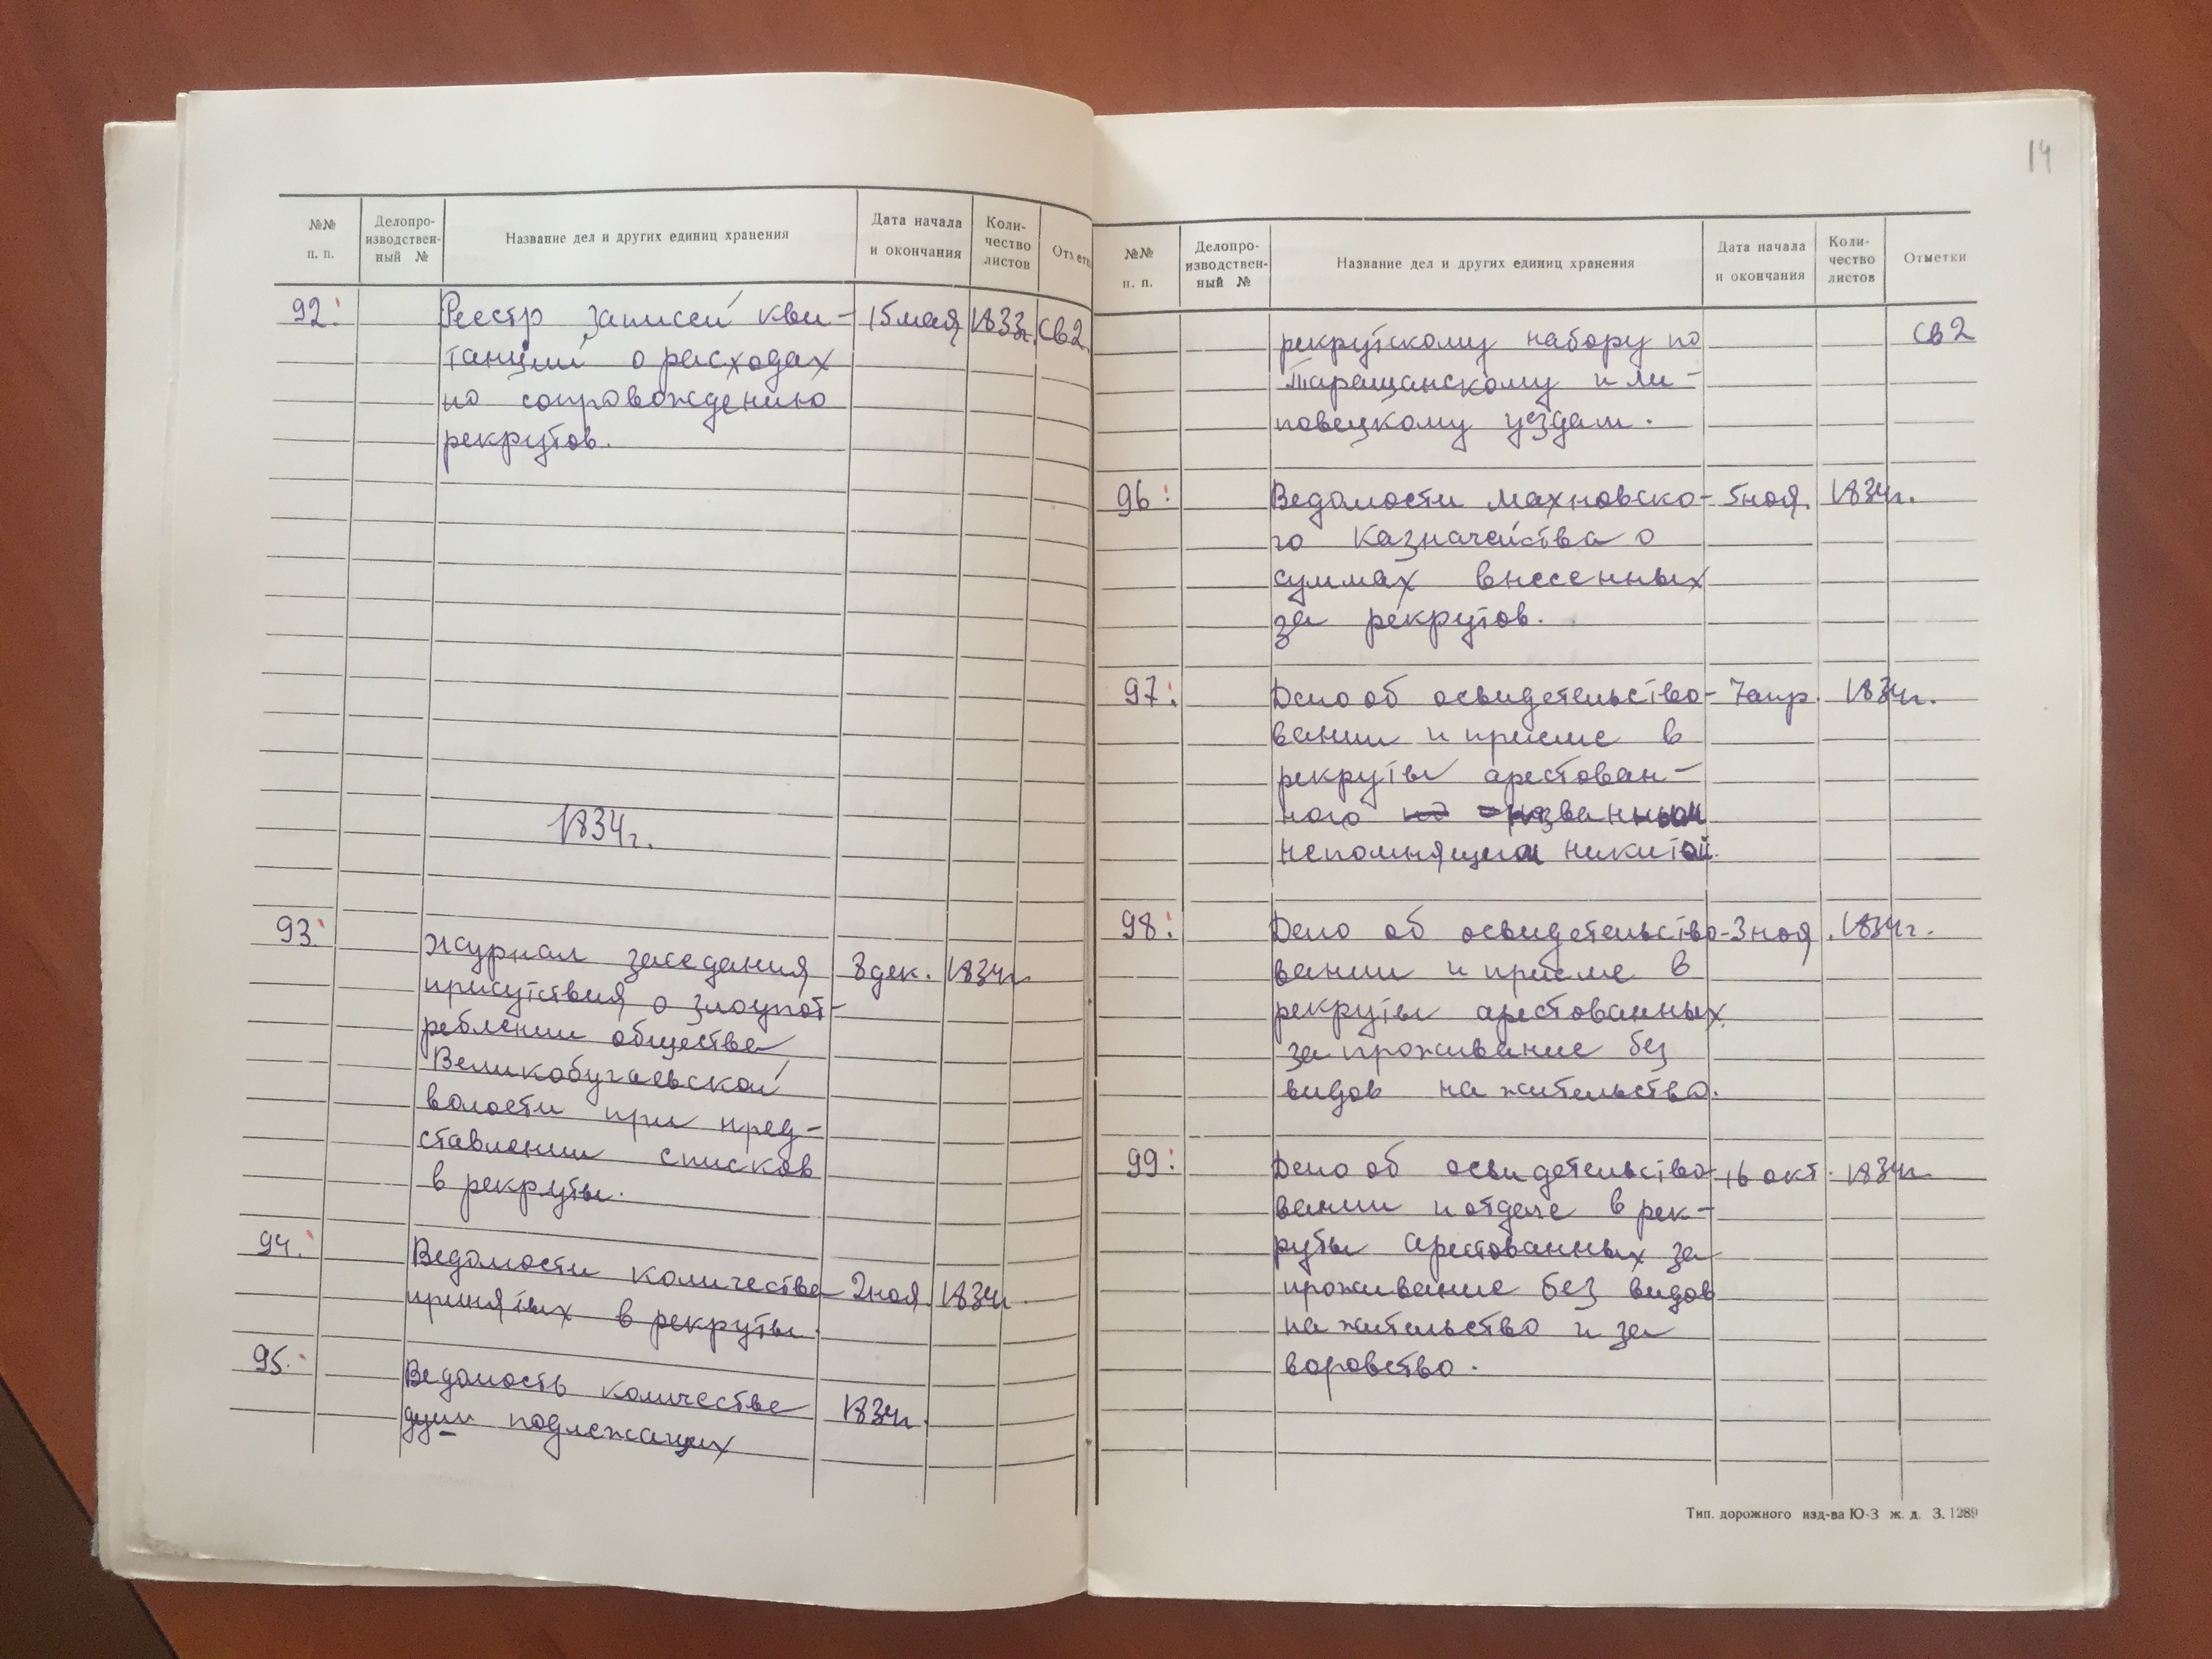 №№ п. п.
Делопро-
изводствен-
ный №
Название дел и других единиц хранения
Дата начала
и окончания
Коли-
чество
листов
92. Реестр записей кви- 15 мая 1833г. св2
танций о расходах
по сопровождению
рекрутов.
1834г.
93. Журнал заседания 8 дек. 1834г.
присутствия о злоупот-
реблении общества
Великобугаевской
волости при пред-
ставлении списков
в рекруты.
94. Ведомости количества 2 ноя. 1834г.
принятых в рекруты.
95. Ведомость количества 1834г.
душ подлежащих
14
№№ п. п.
Делопро-
изводствен-
ный №
Название дел и других единиц хранения
Дата начала
и окончания
Коли-
чество
листов
Отметки
рекрутскому набору по св2
Таращанскому и ли-
повецкому уездам.
96. Ведомости махновско- 5 ноя. 1834г.
го казначейства о
суммах внесенных
за рекрутов.
97. Дело об освидетельство- 7 апр. 1834г.
вании и приеме в
рекруты арестован-
ного названным
непомнящим никитой.
98. Дело об освидетельство- 3 ноя. 1834г.
вании и приеме в
рекруты арестованных
за проживание без
видов на жительство.
99. Дело об освидетельство- 16 окт. 1834г.
вании и отдаче в рек-
руты арестованных за
проживание без видов
на жительство и за
воровство.
Тип. дорожного изд-ва Ю-З ж. д. З. 1289